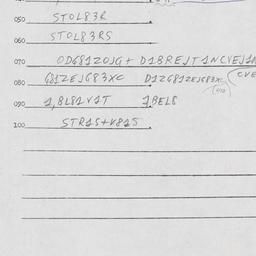 050 STOL83R
060 STOL83RS
070 OD681ZOJG+ D1BREJT1NCVEJ1
080 681ZEJG83XC D1Z681ZEJG83X (CVE
090 1,8L81V1T 1BEL8
100 STR15+V815